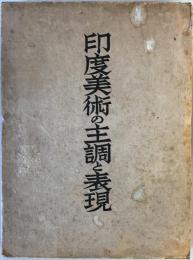 印度美術の主調と表現